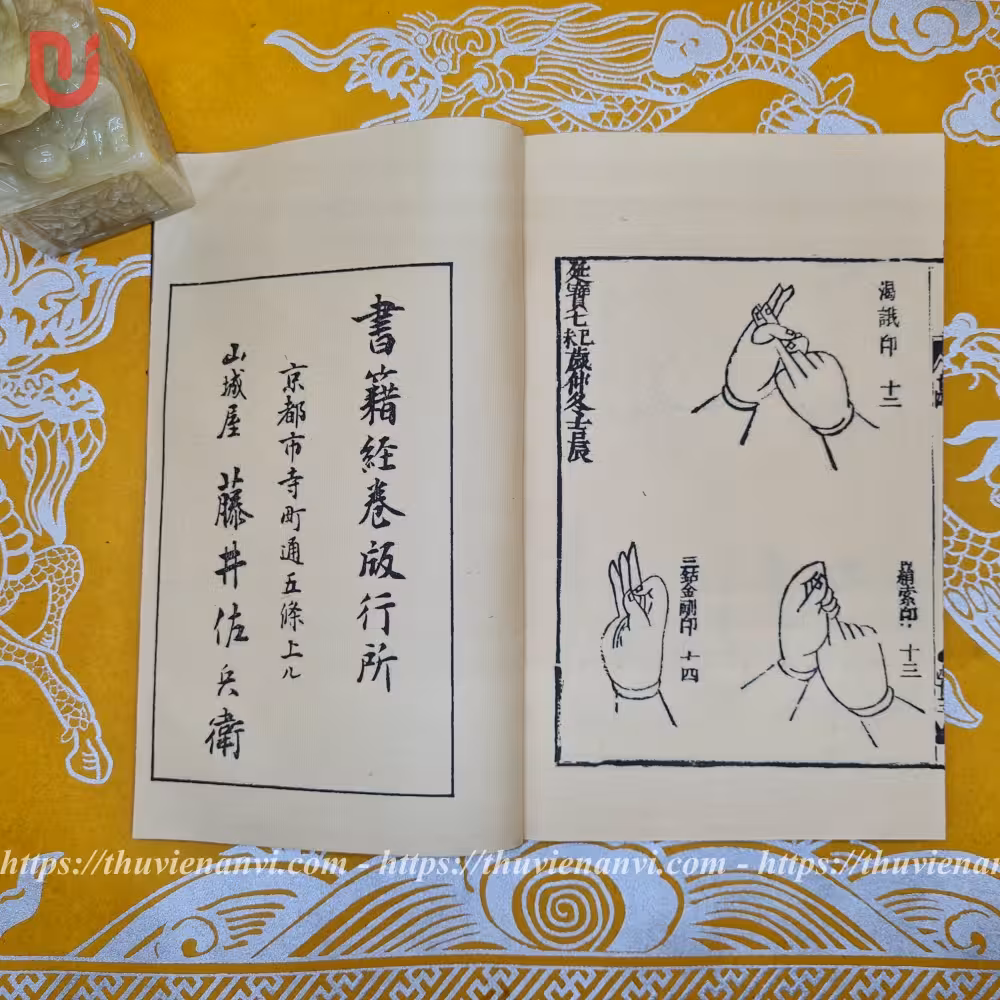 渴誐印 十二
羂索印 十三
三鈷金剛印 十四
延寶七己未歲仲冬吉辰
書籍経巻版行所
京都市寺町通五條上ル
山城屋 藤井佐兵衛
https://thuvienanvi.com - https://thuvienanvi.com - https://thuvienan